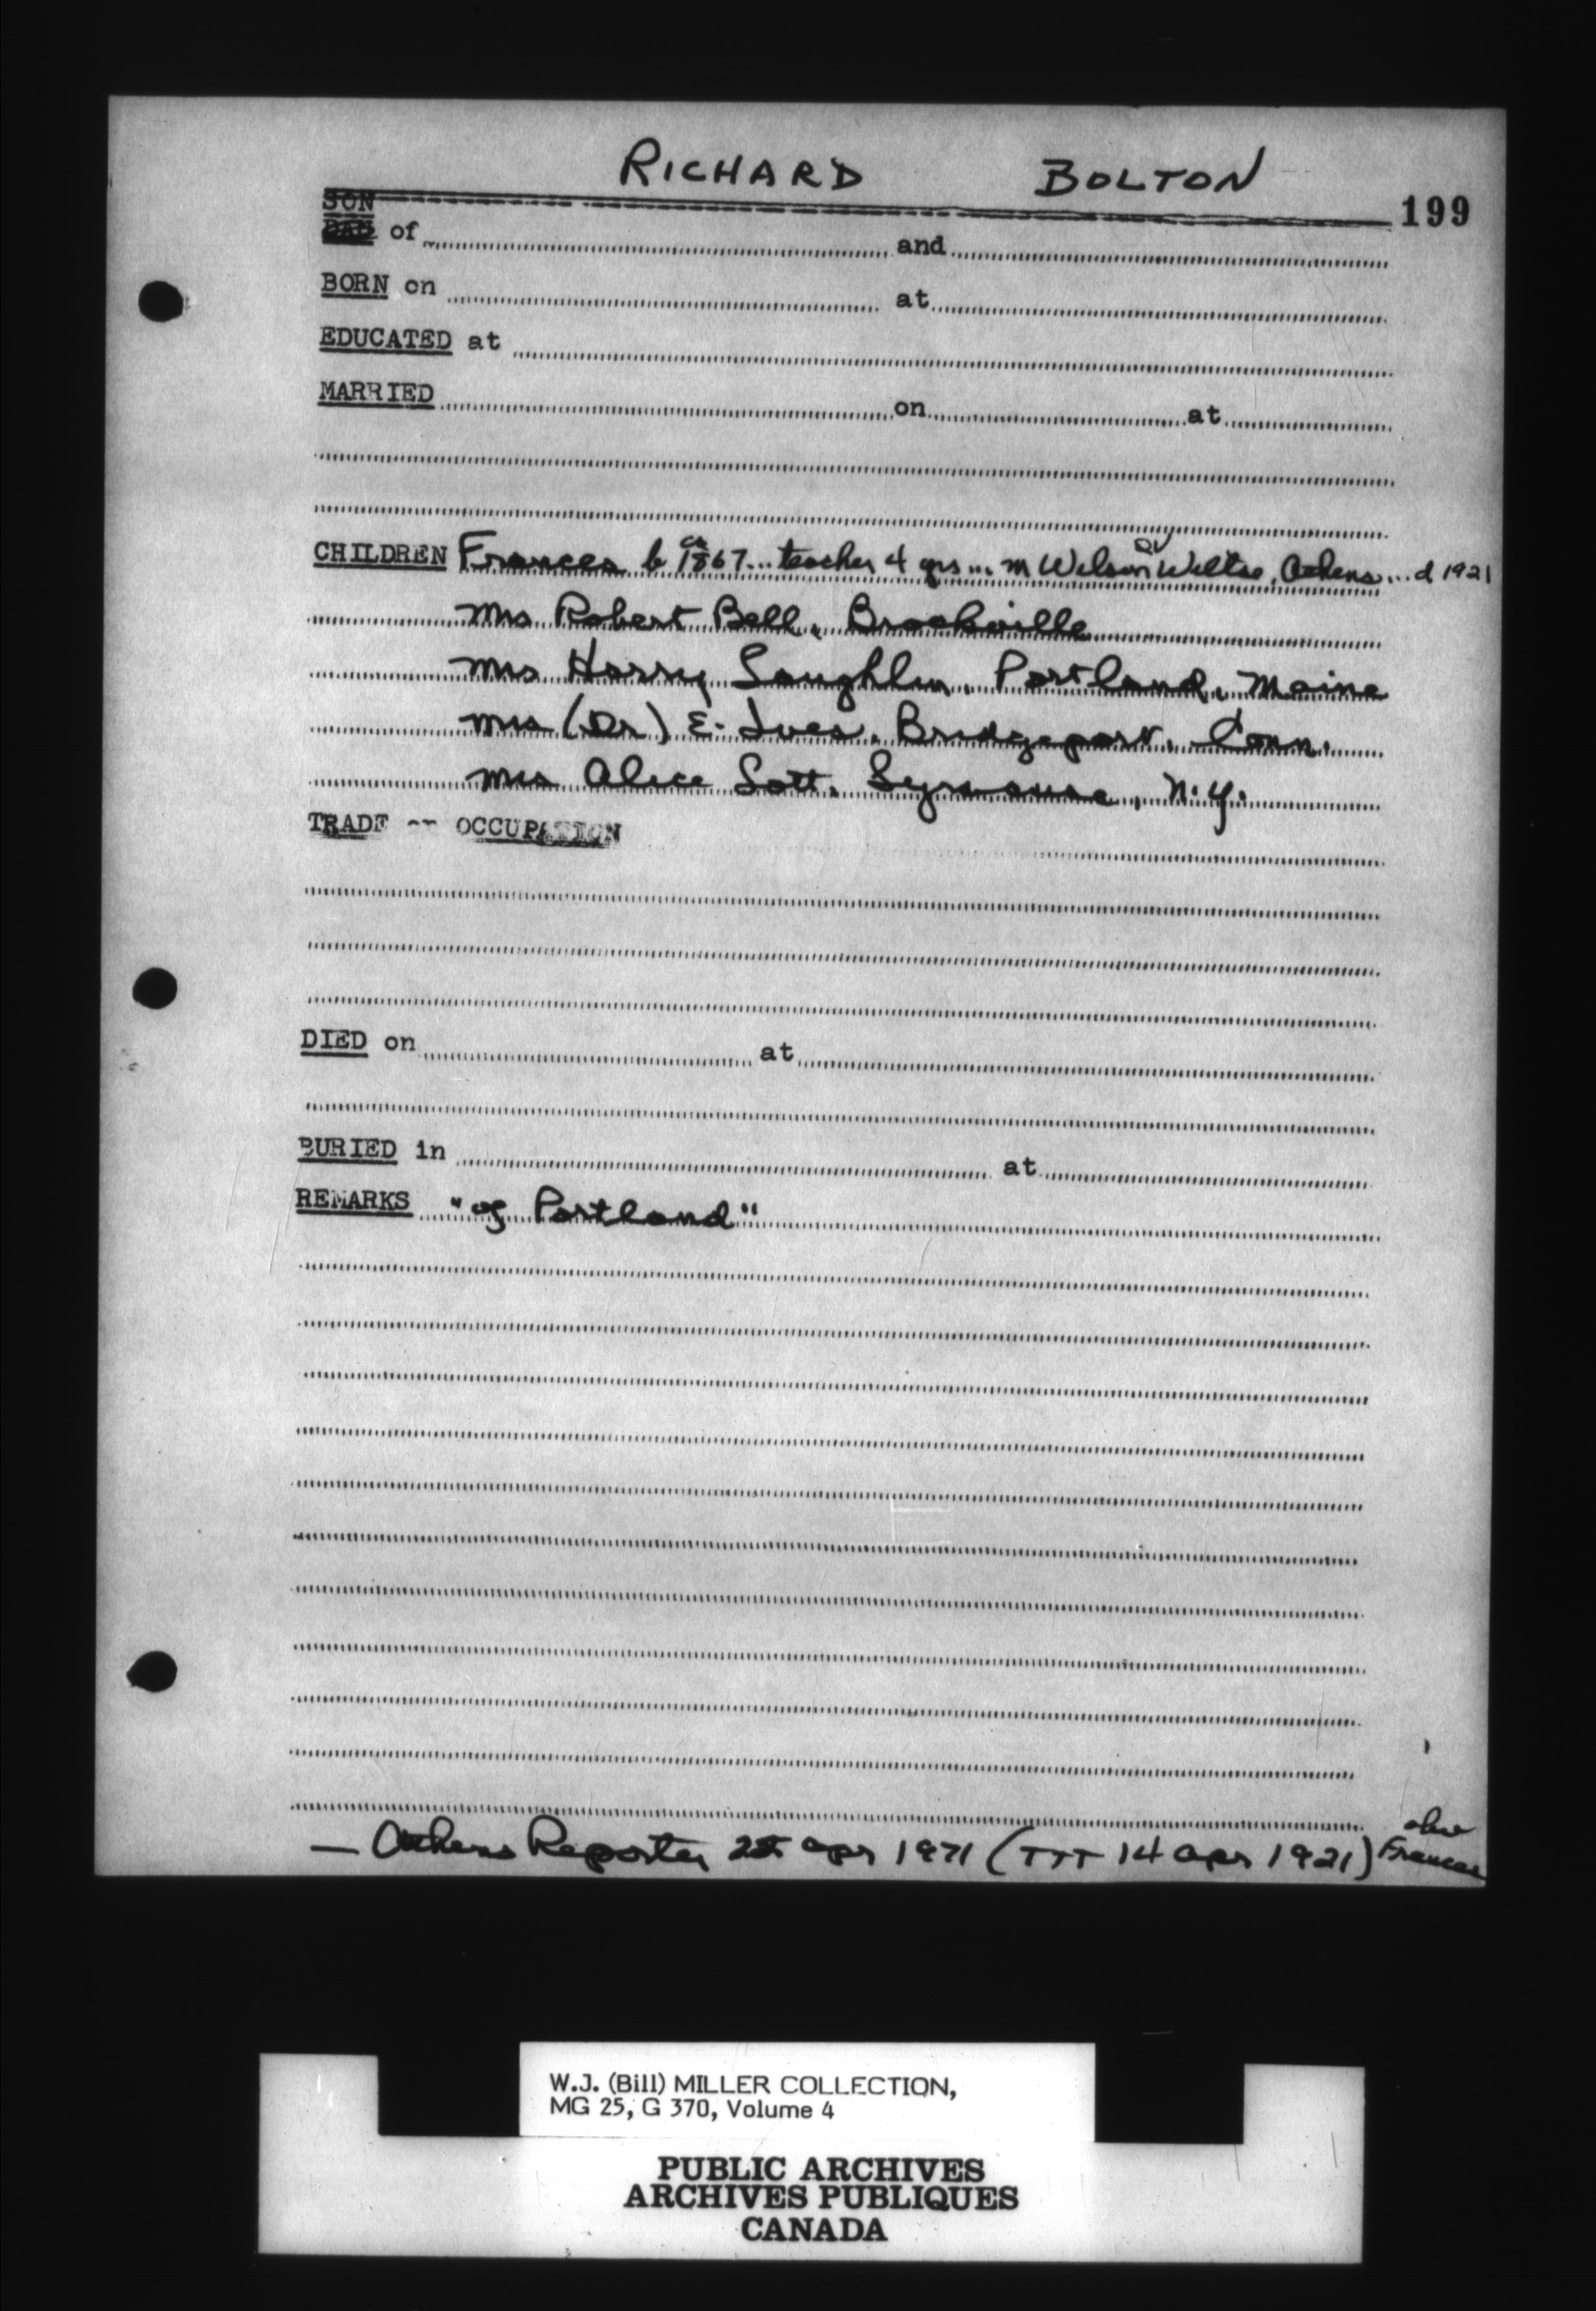 RICHARD BOLTON
199
SON
DAU of and
BORN on at
EDUCATED at
MARRIED on at
CHILDREN Frances b ca 1867... teacher 4 yrs... m Wilson Wiltse, Athens... d 1921
Mrs Robert Bell, Brockville
Mrs Harry Laughlin, Portland, Maine
Mrs (Dr) E. Ives, Bridgeport, Conn.
Mrs Alice Lott, Syracuse, N.Y.
TRADE -- OCCUPATION
DIED on at
BURIED in at
REMARKS "of Portland"
— Athens Reporter apr 1971 (TYT 14 apr 1921) Frances
W.J. (Bill) MILLER COLLECTION,
MG 25, G 370, Volume 4
PUBLIC ARCHIVES
ARCHIVES PUBLIQUES
CANADA